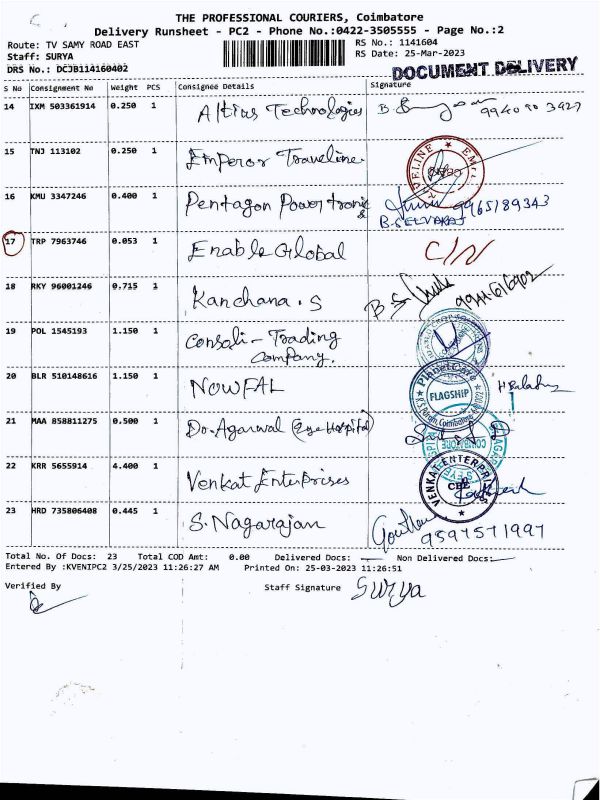 THE PROFESSIONAL COURIERS, Coimbatore
Delivery Runsheet - PC2 - Phone No.:0422-3505555 - Page No.:2
Route: TV SAMY ROAD EAST
RS No.: 1141604
Staff: SURYA
RS Date: 25-Mar-2023
DRS No.: DCJB114160402
DOCUMENT DELIVERY
S No Consignment No Weight PCS Consignee Details Signature
14 IXM 503361914 0.250 1 Altius Technologies
15 TNJ 113102 0.250 1 Emperor Traveline
16 KMU 3347246 0.400 1 Pentagon Powertronics 9965189343
B.SELVARAJ
17 TRP 7963746 0.053 1 Enable Global C/N
18 RKY 96001246 0.715 1 Kanchana . S
19 POL 1545193 1.150 1 Consoli - Trading
Company.
20 BLR 510148616 1.150 1 NOWFAL FLAGSHIP
21 MAA 858811275 0.500 1 Dr. Agarwal (Eye Hospital)
22 KRR 5655914 4.400 1 Venkat Enterprises VENKAT ENTERPRISES CBE
23 HRD 735806408 0.445 1 S. Nagarajan 9597571997
Total No. Of Docs: 23 Total COD Amt: 0.00 Delivered Docs: Non Delivered Docs:
Entered By :KVENIPC2 3/25/2023 11:26:27 AM Printed On: 25-03-2023 11:26:51
Verified By
Staff Signature Surya